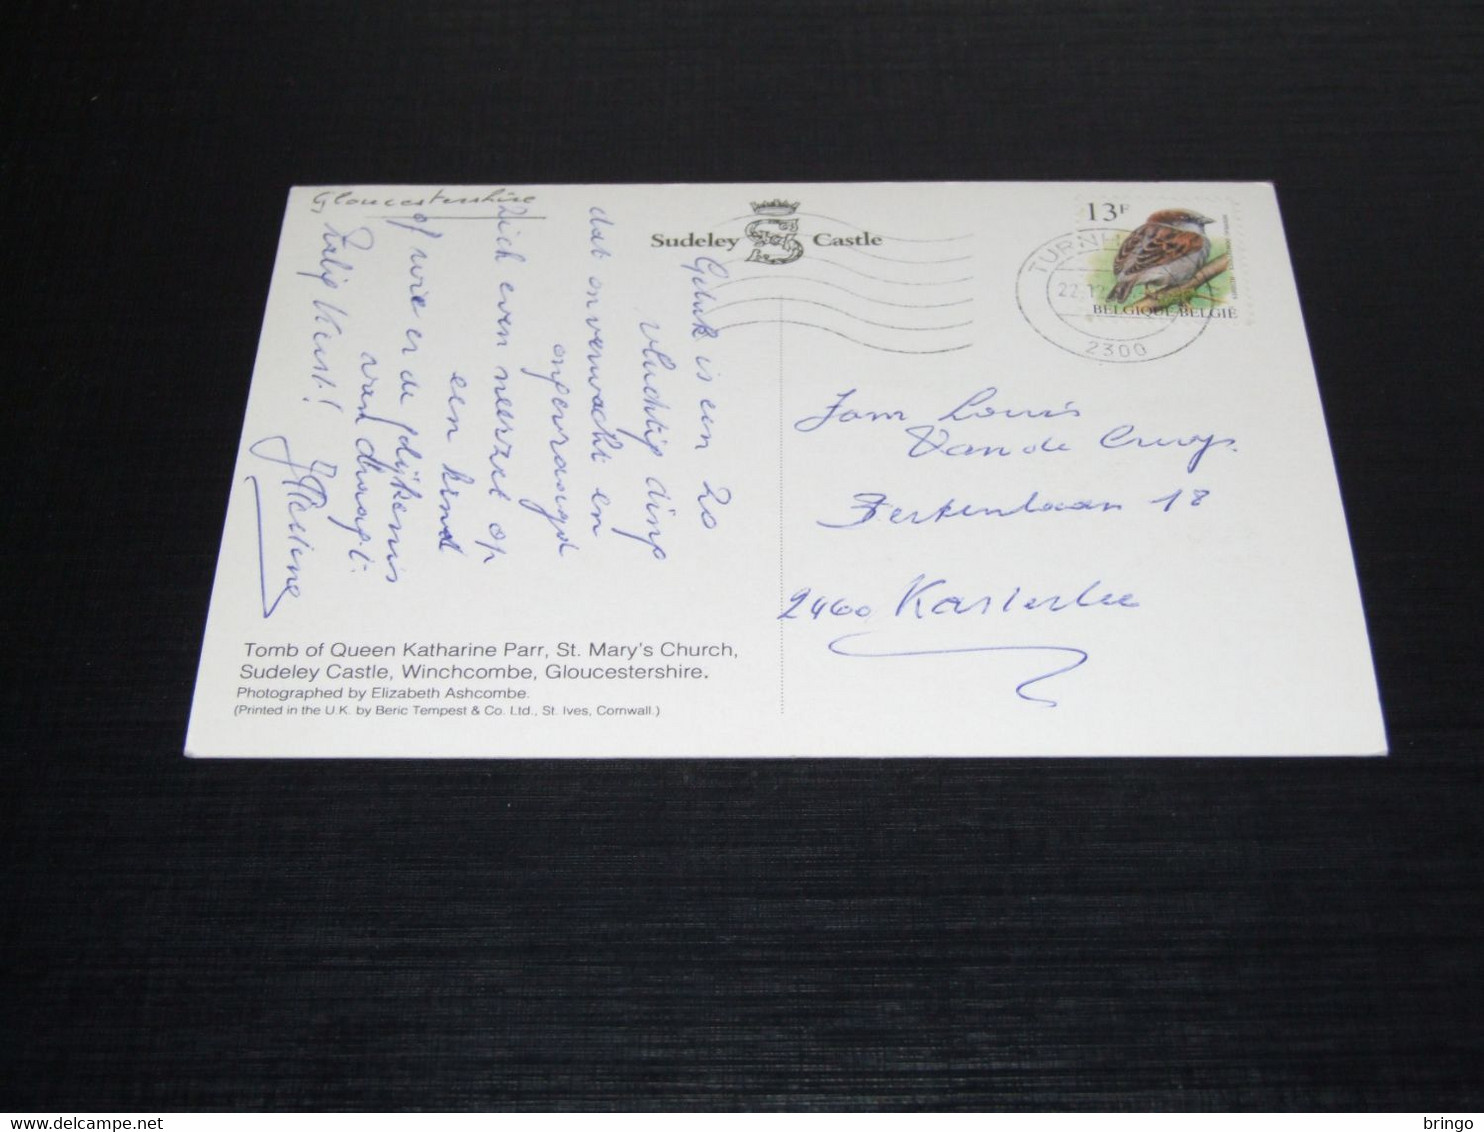 Gloucestershire
Sudeley Castle
13F
BELGIQUE-BELGIË
TURN
22.12
2300
Geluk is een zo
vluchtig ding
dat onverwacht en
ongevraagd
zich even neerzet op
een kind
of wie er de gelijkenis
van draagt.
Zalig Kerst!
Jan Louis
Van de Cruys
Kerkenlaan 18
2460 Kasterlee
Tomb of Queen Katharine Parr, St. Mary's Church,
Sudeley Castle, Winchcombe, Gloucestershire.
Photographed by Elizabeth Ashcombe.
(Printed in the U.K. by Beric Tempest & Co. Ltd., St. Ives, Cornwall.)
delcampe.net
bringo